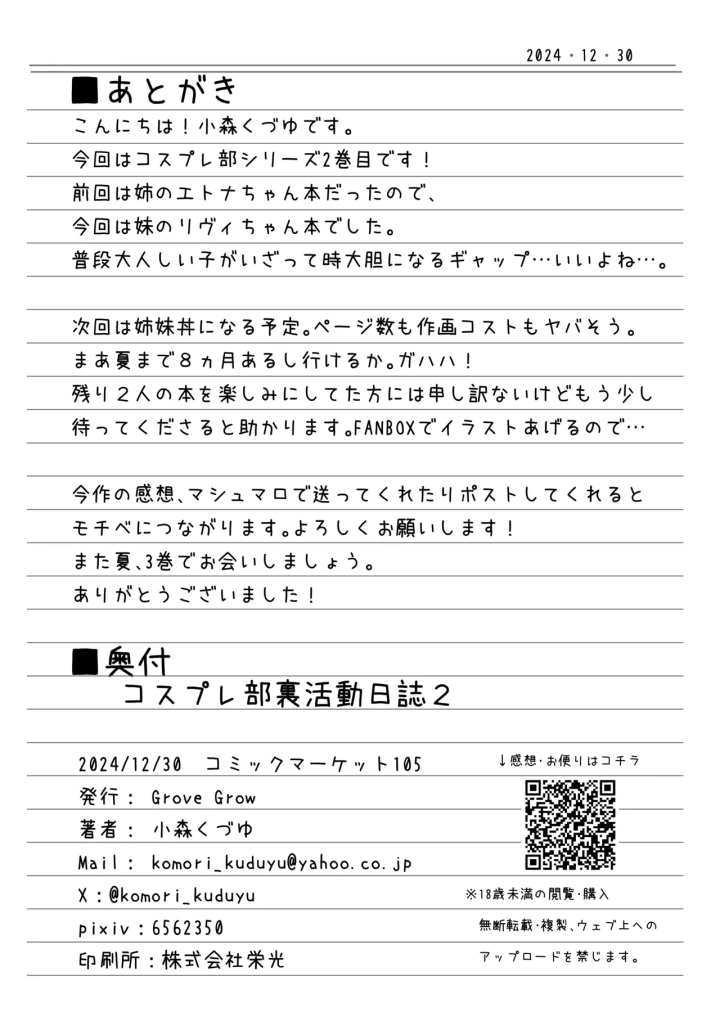 2024・12・30
■あとがき
こんにちは！小森くづゆです。
今回はコスプレ部シリーズ2巻目です！
前回は姉のエトナちゃん本だったので、
今回は妹のリヴィちゃん本でした。
普段大人しい子がいざって時大胆になるギャップ…いいよね…。
次回は姉妹丼になる予定。ページ数も作画コストもヤバそう。
まあ夏まで８ヵ月あるし行けるか。ガハハ！
残り２人の本を楽しみにしてた方には申し訳ないけどもう少し
待ってくださると助かります。FANBOXでイラストあげるので…
今作の感想、マシュマロで送ってくれたりポストしてくれると
モチベにつながります。よろしくお願いします！
また夏、3巻でお会いしましょう。
ありがとうございました！
■奥付
コスプレ部裏活動日誌２
2024/12/30　コミックマーケット105
発行： Grove Grow
著者： 小森くづゆ
Mail： komori_kuduyu@yahoo.co.jp
X：@komori_kuduyu
pixiv：6562350
印刷所：株式会社栄光
↓感想・お便りはコチラ
※18歳未満の閲覧・購入
無断転載・複製、ウェブ上への
アップロードを禁じます。